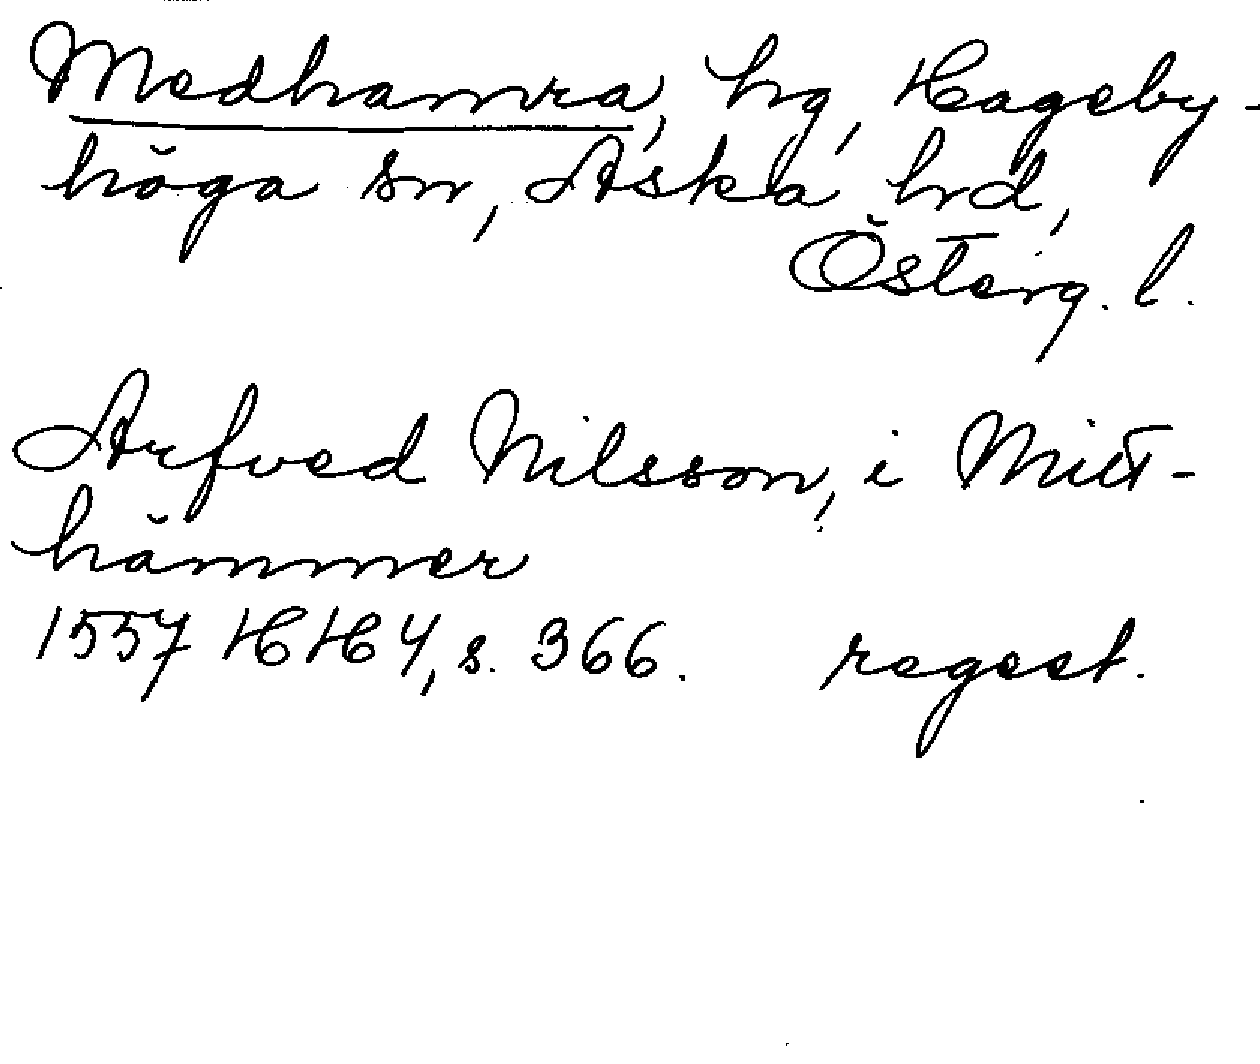 Medhamra, hg, Hageby-
höga sn, Aska hd,
Österg. l.
Arfved Nilsson, i Mitt-
hämmer
1557 HH 4, s. 366. regest.